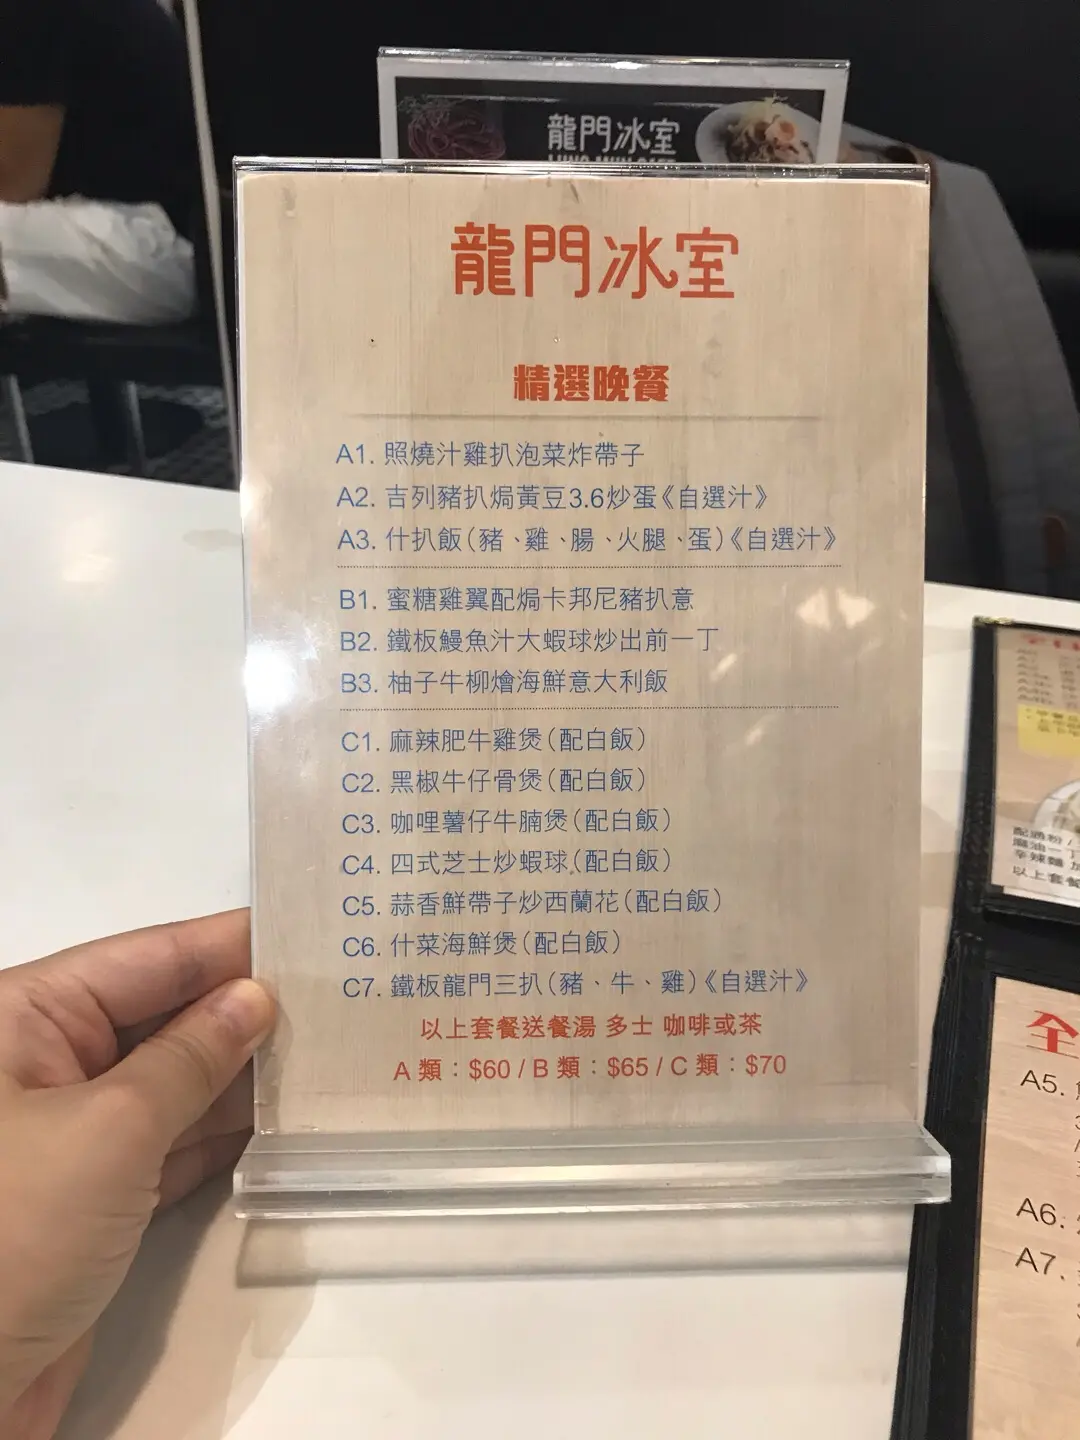 龍門冰室
龍門冰室
精選晚餐
A1. 照燒汁雞扒泡菜炸帶子
A2. 吉列豬扒焗黃豆3.6炒蛋《自選汁》
A3. 什扒飯(豬、雞、腸、火腿、蛋)《自選汁》
B1. 蜜糖雞翼配焗卡邦尼豬扒意
B2. 鐵板鰻魚汁大蝦球炒出前一丁
B3. 柚子牛柳燴海鮮意大利飯
C1. 麻辣肥牛雞煲(配白飯)
C2. 黑椒牛仔骨煲(配白飯)
C3. 咖哩薯仔牛腩煲(配白飯)
C4. 四式芝士炒蝦球(配白飯)
C5. 蒜香鮮帶子炒西蘭花(配白飯)
C6. 什菜海鮮煲(配白飯)
C7. 鐵板龍門三扒(豬、牛、雞)《自選汁》
以上套餐送餐湯 多士 咖啡或茶
A 類：$60 / B 類：$65 / C 類：$70
配通粉 /
麻油一丁
辛辣麵 加
以上套餐
全
A5.
A6.
A7.